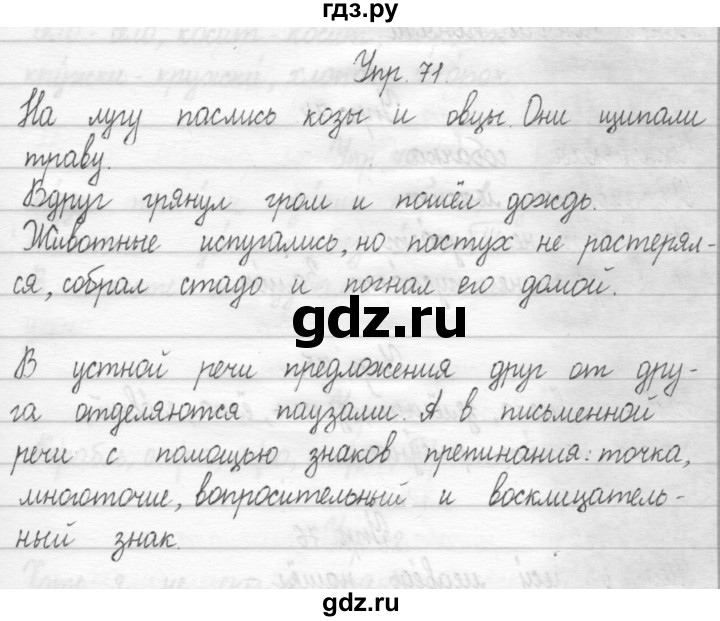 гдз.ру
Упр. 71
На лугу паслись козы и овцы. Они щипали
траву.
Вдруг грянул гром и пошёл дождь.
Животные испугались, но пастух не растерял-
ся, собрал стадо и погнал его домой.
gdz.ru
В устной речи предложения друг от дру-
га отделяются паузами. А в письменной
речи с помощью знаков препинания: точка,
многоточие, вопросительный и восклицатель-
ный знак.
gdz.ru